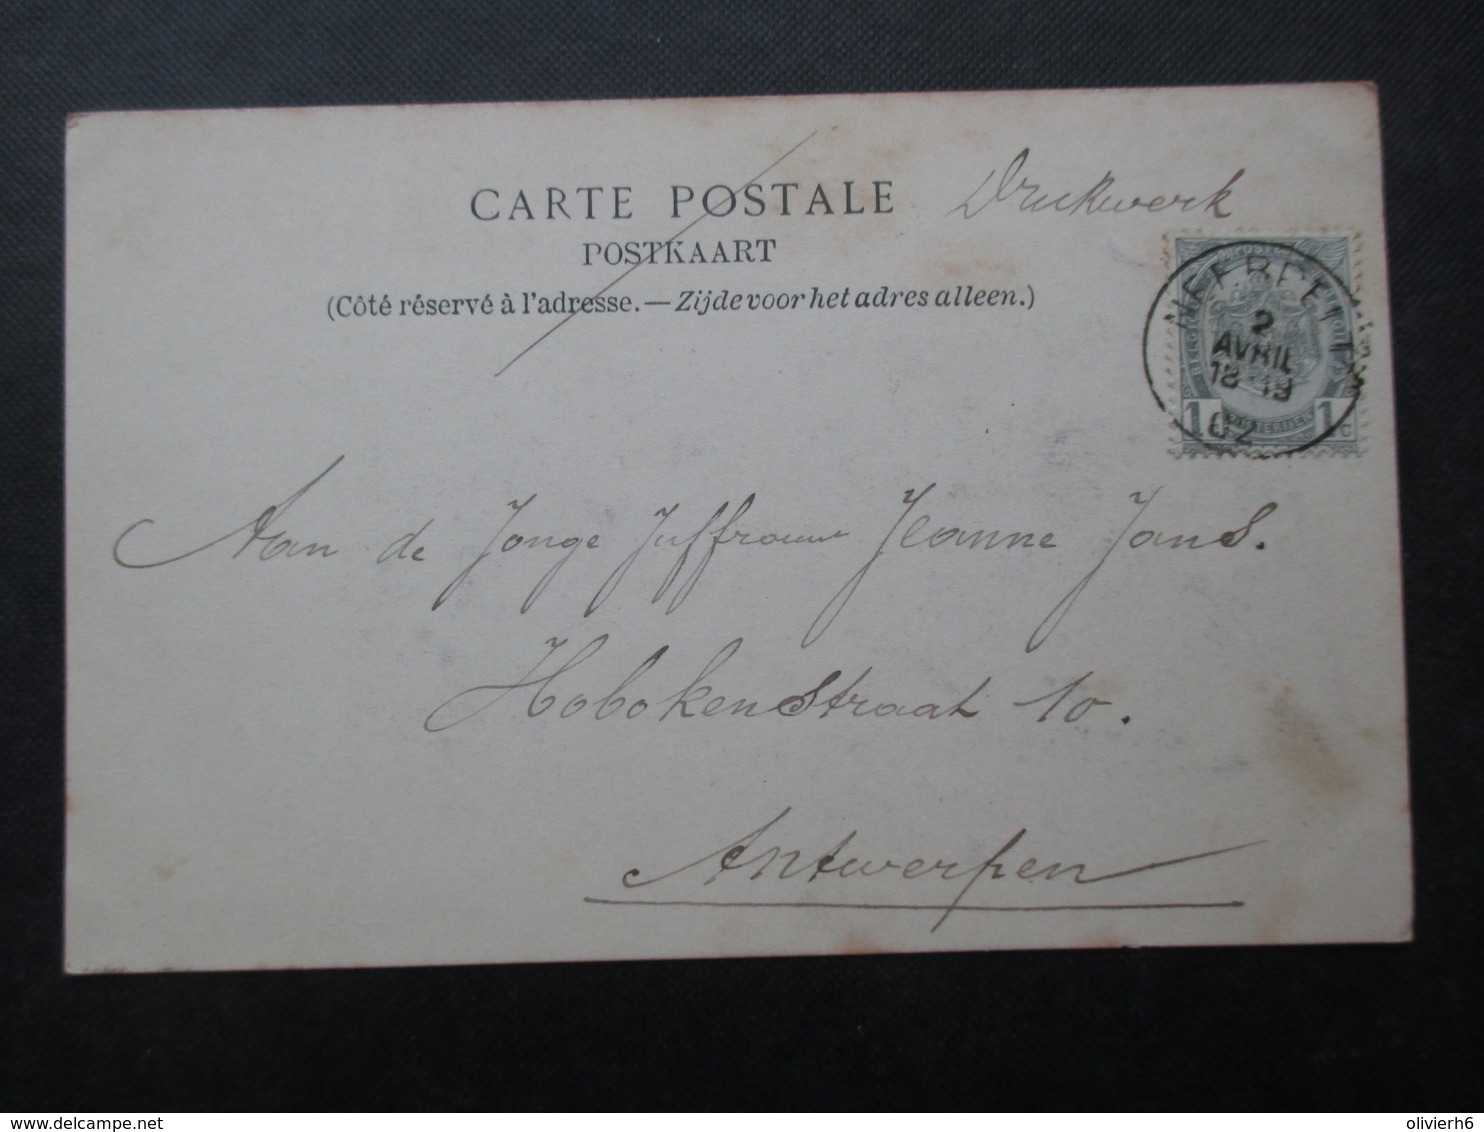 CARTE POSTALE
Drukwerk
POSTKAART
(Côté réservé à l'adresse. — Zijde voor het adres alleen.)
2
AVRIL
18-19
02
1 1 c
Aan de Jonge Juffrouw Jeanne Jans.
Hobokenstraat 10.
Antwerpen
delcampe.net
olivierh6